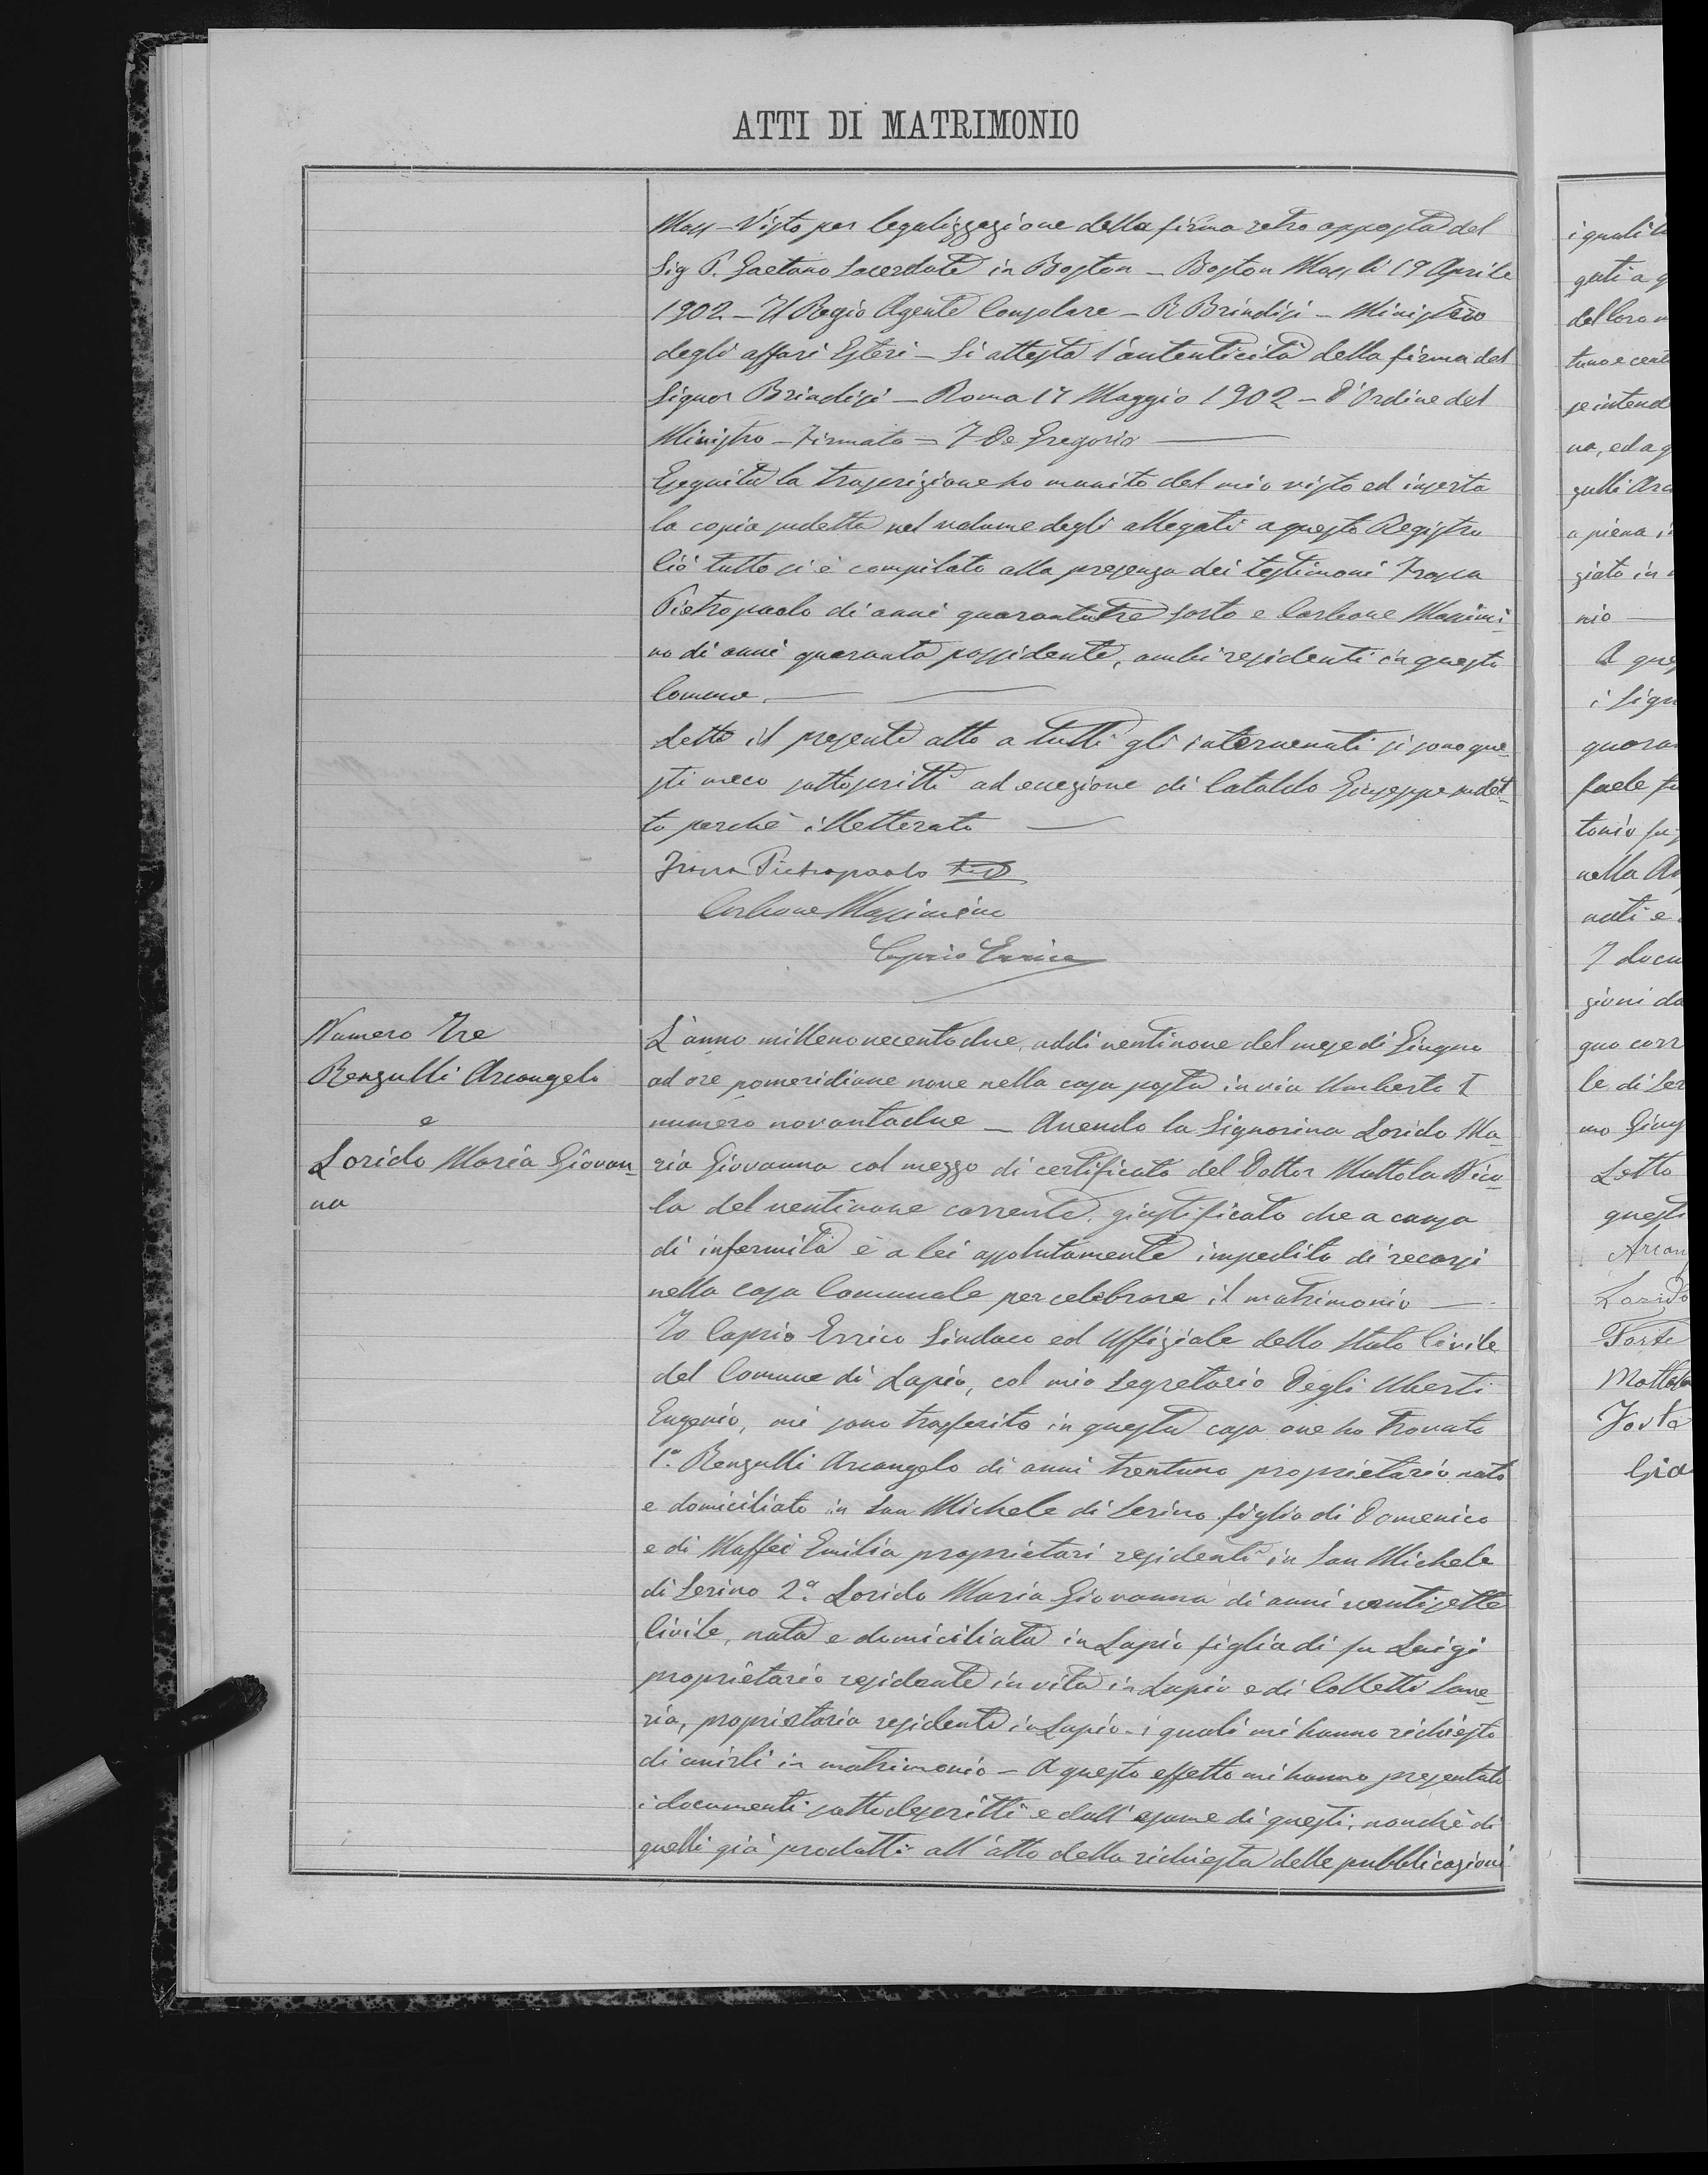 ATTI DI MATRIMONIO
Mass – Visto per legalizzazione della firma retro apposta del
Sig P. Gaetano Sacerdote in Boston – Boston Mass li 19 Aprile
1902 – Il Regio Agente Consolare – R Brindisi – Ministero
degli affari Esteri – Si attesta l'autenticità della firma del
Signor Brindisi – Roma 17 Maggio 1902 – D'Ordine del
Ministro – Firmato – De Gregorio
Eseguita la trascrizione ho munito del mio visto ed inserta
la copia sudetta nel volume degli allegati a questo Registro
Ciò tutto si è compilato alla presenza dei testimoni
Pietropaolo di anni quarantatre sarto e Carbone Massimi-
no di anni quaranta possidente, ambi residenti in questo
Comune.
Letto il presente atto a tutti gli intervenuti si sono que-
sti meco sottoscritti ad eccezione di Cataldo Giuseppe sudet-
to perchè illetterato
Pietropaolo
Carbone Massimino
Caprio Errico
Numero Tre
Renzulli Arcangelo
e
Lorido Maria Giovan-
na
L'anno millenovecentodue, addi ventinove del mese di Giugno
ad ore pomeridiane nove nella casa posta in via Umberto I
numero novantadue – Avendo la Signorina Lorido Ma-
ria Giovanna col mezzo di certificato del Dottor Mattola Nico-
la del ventinove corrente, giustificato che a causa
di infermità è a lei assolutamente impedito di recarsi
nella casa Comunale per celebrare il matrimonio –
Io Caprio Errico Sindaco ed Uffiziale dello Stato Civile
del Comune di Lapio, col mio Segretario Degli Uberti
Eugenio, mi sono trasferito in questa casa ove ho trovato
1.° Renzulli Arcangelo di anni trentuno proprietario nato
e domiciliato in San Michele di Serino figlio di Domenico
e di Maffei Emilia proprietari residenti in San Michele
di Serino 2.ª Lorido Maria Giovanna di anni ventisette
Civile, nata e domiciliata in Lapio figlia di fu Luigi
proprietario residente in vita in Lapio e di Colletti Save-
ria, proprietaria residente in Lapio – i quali mi hanno richiesto
di unirli in matrimonio – A questo effetto mi hanno presentato
i documenti sottodescritti e dall'esame di questi, nonchè di
quelli già prodotti all'atto della richiesta delle pubblicazioni
del loro
na, ed a
a piena
giato in
nio
A
i
quaran
nella
I docu
gioni
le di Ser
Letto
questi
Arcan
Lorido
Forte
Mattola